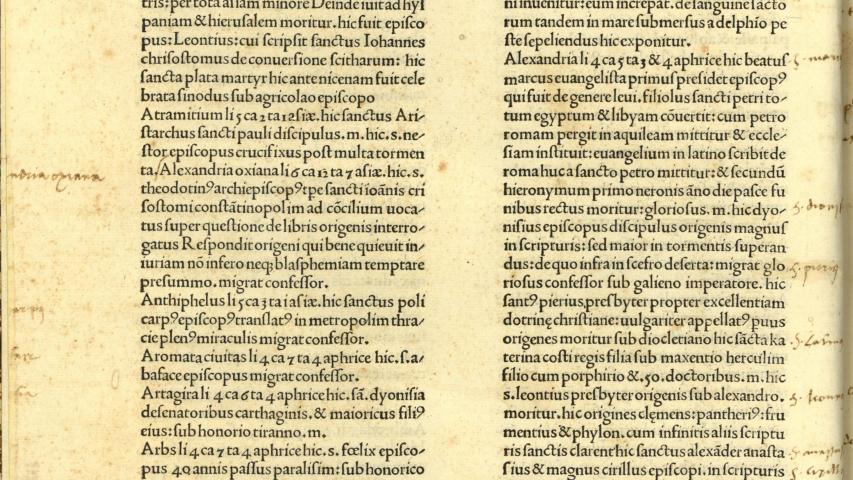 tris: per tota asiam minore Deinde iuit ad hyſ
paniam & hierusalem moritur. hic fuit episco
pus: Leontius: cui scripsit sanctus Iohannes
chrisostomus de conuersione scitharum: hic
sancta plata martyr hic ante nicenam fuit cele
brata sinodus sub agricolao episcopo
Atramitium li 5 ca 2 ta 1 2 siæ. hic sanctus Ari⸗
starchus sancti pauli discipulus. m. hic. s. ne⸗
stor episcopus crucifixus post multa tormen
ta. Alexandria oxiana li 6 ca 12 ta 7 asiæ. hic. s.
theodotinꝰ archiepiscopꝰ tpe sancti ioānis cri
sostomi constātinopolim ad cōcilium uoca⸗
tus super questione de libris origenis interro⸗
gatus Respondit origeni qui bene quieuit in⸗
iuriam nō infero neqꝫ blasphemiam temptare
presummo. migrat confessor.
Anthiphelus li 5 ca 3 ta i asiæ. hic sanctus poli
carpꝰ episcopꝰ translatꝰ in metropolim thra⸗
cie plenꝰ miraculis migrat confessor.
Aromata ciuitas li 4 ca 7 ta 4 aphrice hic. s. a⸗
baface episcopus migrat confessor.
Artagira li 4 ca 6 ta 4 aphrice hic. sā. dyonisia
desenatoribus carthaginis. & maioricus filiꝰ
eius: sub honorio tiranno. m.
Arbs li 4 ca 7 ta 4 aphrice hic. s. fœlix episco⸗
pus 40 annis passus paralisim: sub honorico
ni inuenitur: eum increpat. de sanguine iacto
rum tandem in mare submersus a delphio pe
ste sepeliendus hic exponitur.
Alexandria li 4 ca 5 ta 3 & 4 aphrice hic beatus
marcus euangelista primus presidet episcopꝰ
qui fuit de genere leui. filiolus sancti petri to⸗
tum egyptum & libyam cōuertit: cum petro
romam pergit in aquileam mittitur & eccle⸗
siam instituit: euangelium in latino scribit de
roma huc a sancto petro mittitur: & secundū
hieronymum primo neronis āno die pasce fu
nibus rectus moritur: gloriosus. m. hic dyo⸗
nisius episcopus discipulus origenis magnus
in scripturis: sed maior in tormentis superan
dus: de quo infra in scefro deserta: migrat glo
riosus confessor sub galieno imperatore. hic
santꝰ pierius, presbyter propter excellentiam
dotrinę christiane: uulgariter appellatꝰ puus
origenes moritur sub diocletiano hic sācta ka
terina costi regis filia sub maxentio herculim
filio cum porphirio &. 50. doctoribus. m. hic
s. leontius presbyter origenis sub alexandro.
moritur. hic origines clęmens: pantheriꝰ: fru
mentius & phylon. cum infinitis aliis scriptu
ris sanctis clarent hic sanctus alexāder anasta
sius & magnus cirillus episcopi. in scripturis